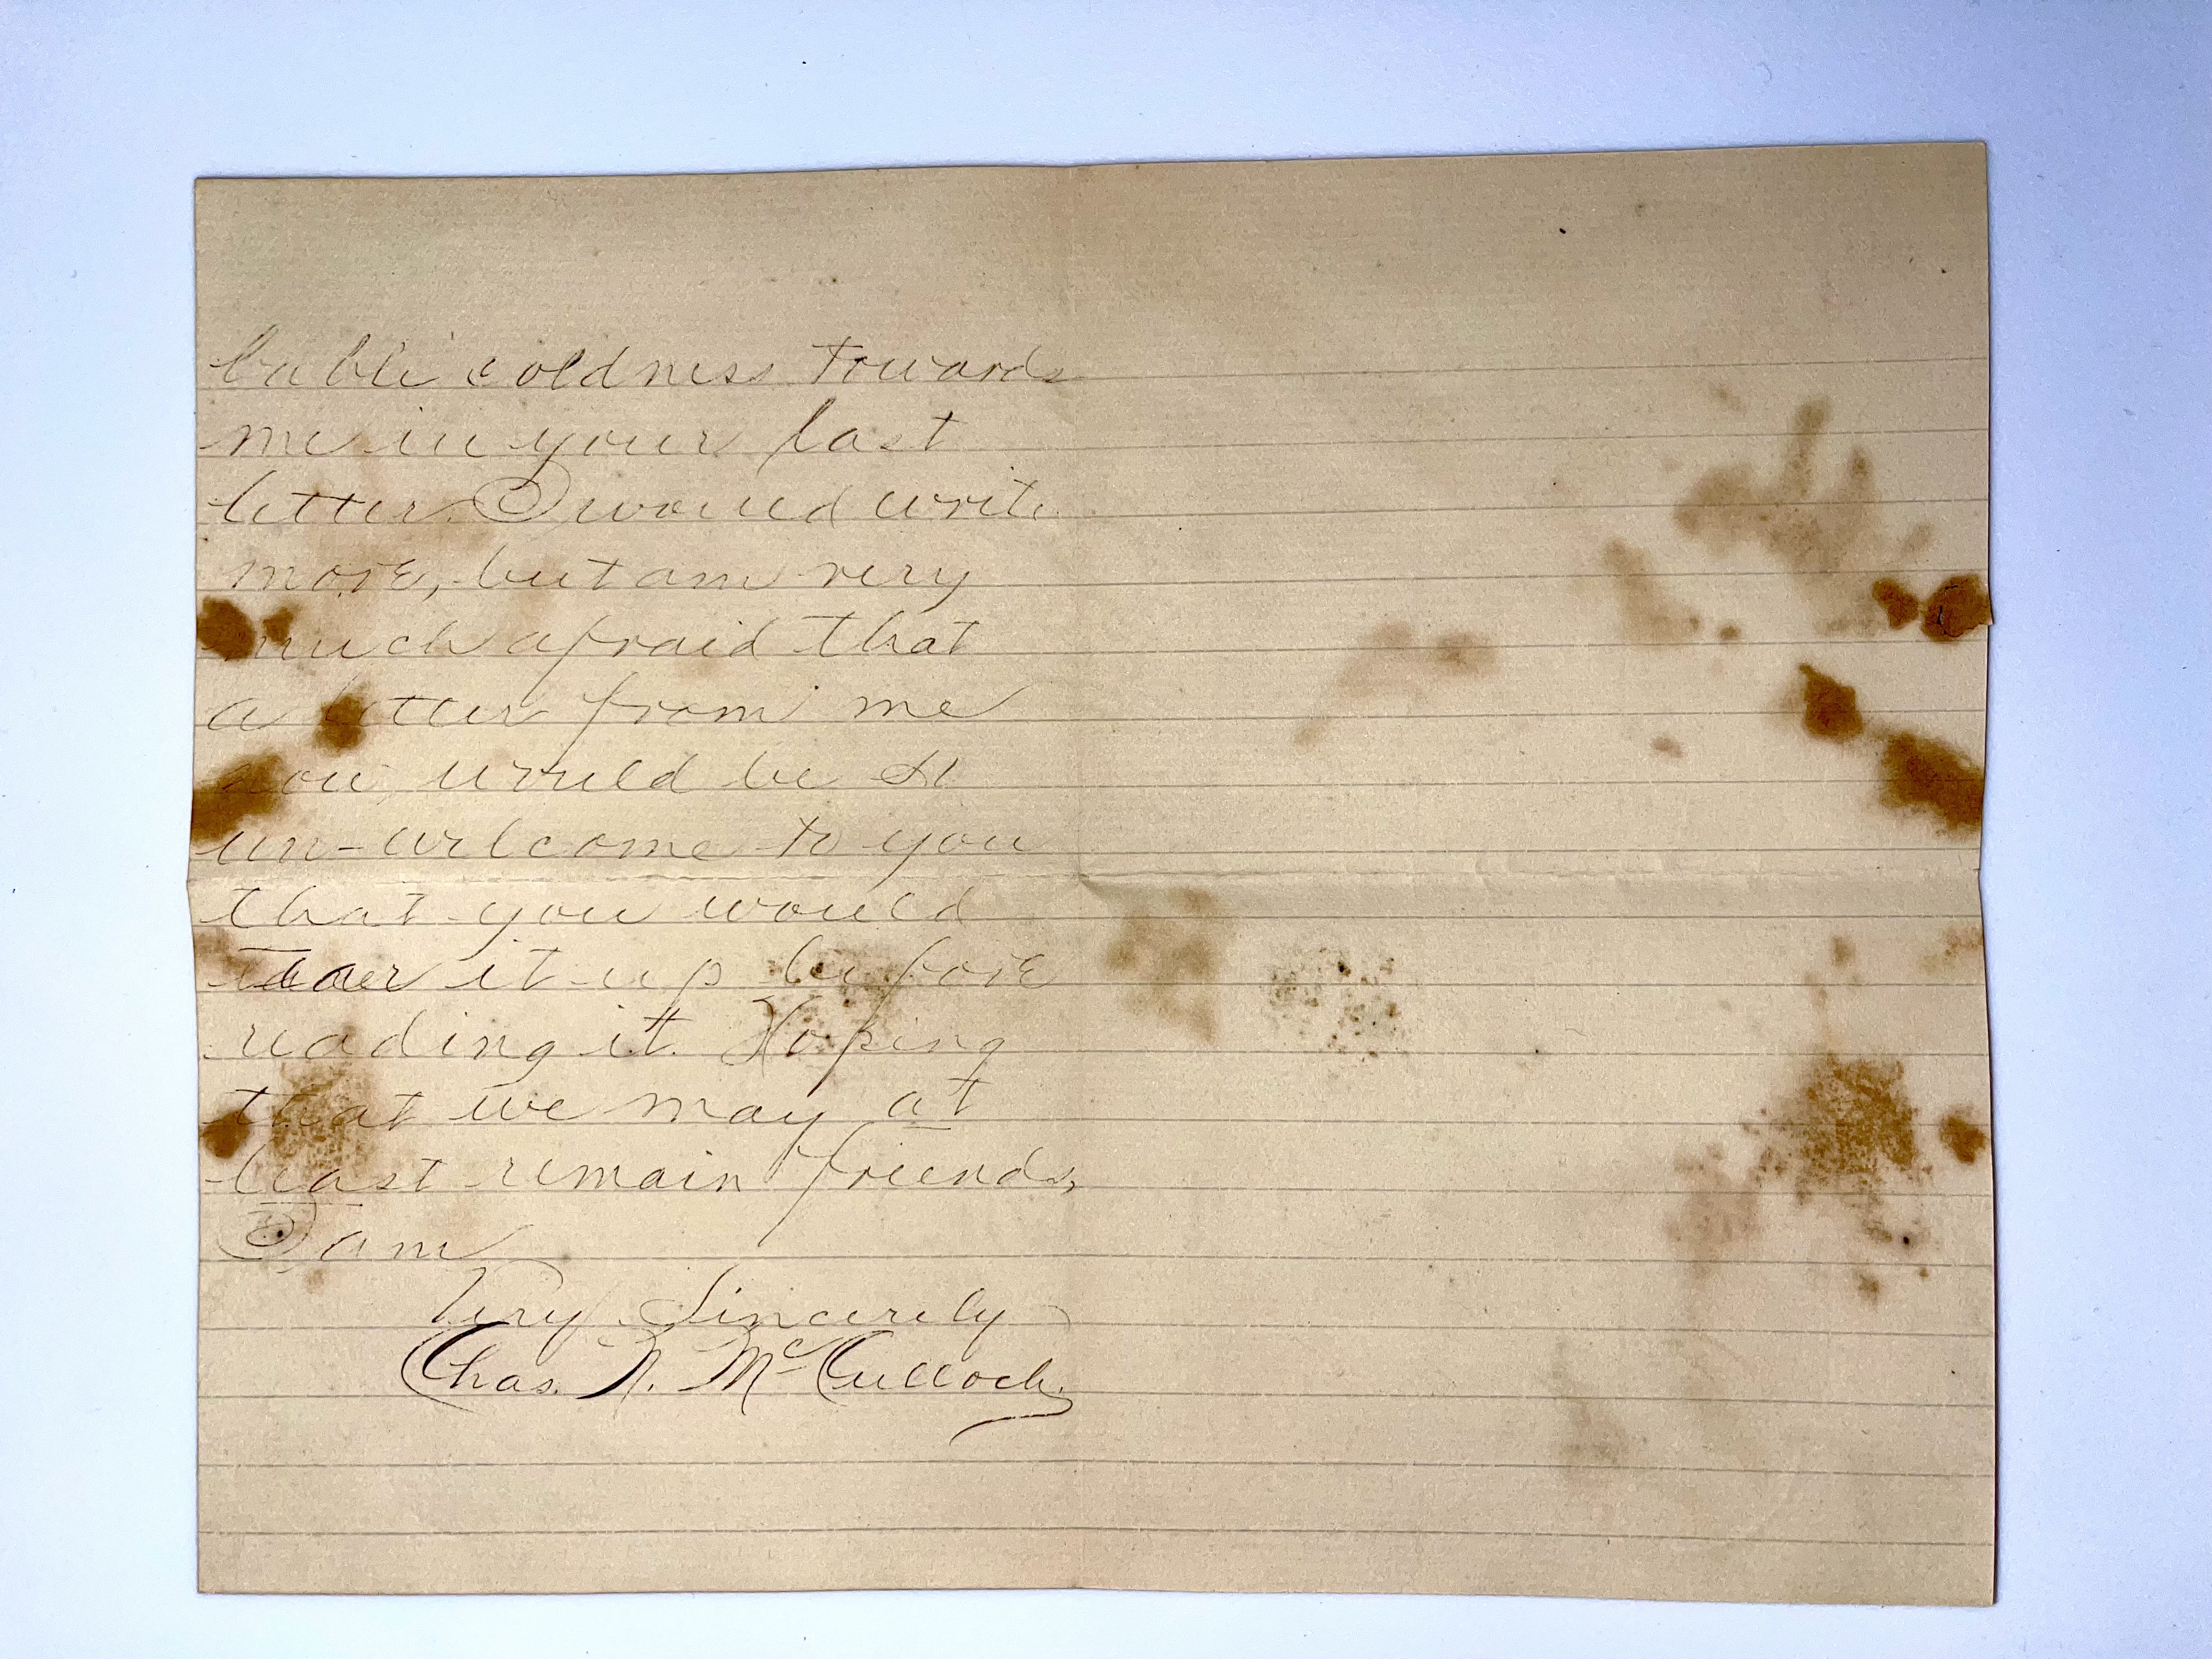 bable coldness towards
me in your last
letter. I would write
more, but am very
much afraid that
a letter from me
now, would be so
un-welcome to you
that you would
it up before
reading it. Hoping
that we may at
least remain friends,
I am
Very Sincerely
Chas. N. McCulloch.